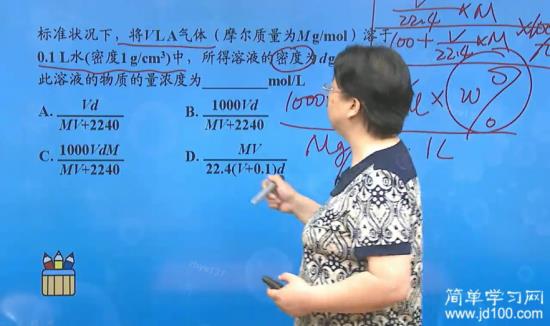 标准状况下,将VLA气体(摩尔质量为Mg/mol)溶于
0.1 L水(密度1g/cm³)中,所得溶液的密度为dg
此溶液的物质的量浓度为________mol/L
A. Vd/(MV+2240) B. 1000Vd/(MV+2240)
C. 1000VdM/(MV+2240) D. MV/(22.4(V+0.1)d)
V/22.4 ×M
100+ V/22.4 ×M
×100%
1000
× w%
Mg
1L
简单学习网
www.jd100.com